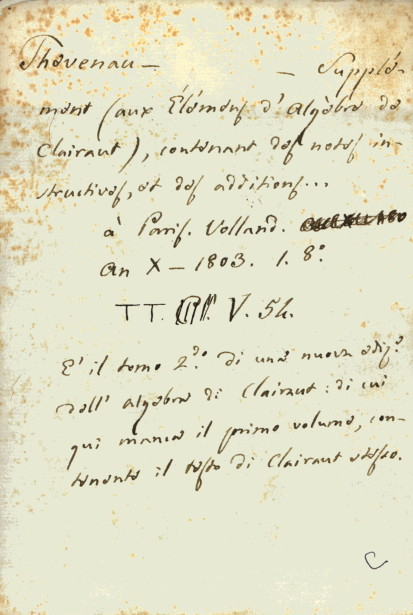 Thevenau — — Supplé-
ment (aux Élémens d'Algèbre de
Clairaut), contenant des notes in-
structives, et des additions...
à Paris. Volland.
An X — 1803. 1. 8.°
TT. V. 54.
E' il tomo 2.do di una nuova ediz.e
dell' Algebra di Clairaut: di cui
qui manca il primo volume, con-
tenente il testo di Clairaut stesso.
C